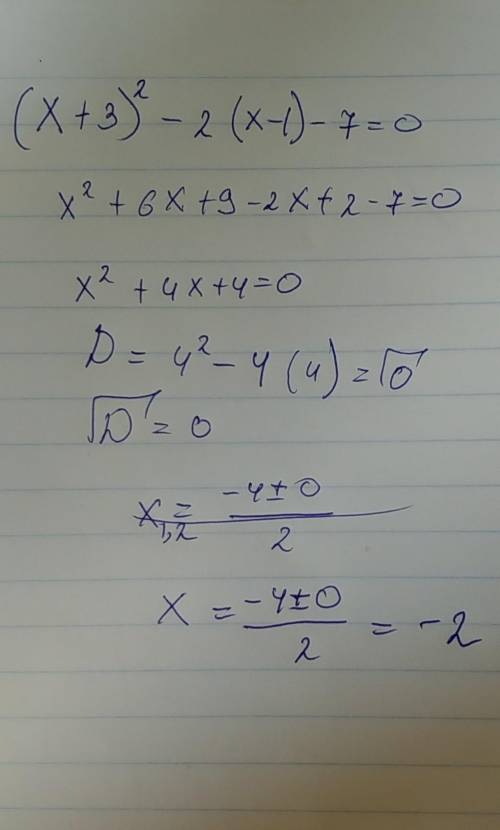 (x+3)² - 2(x-1) - 7 = 0
x² + 6x + 9 - 2x + 2 - 7 = 0
x² + 4x + 4 = 0
D = 4² - 4(4) = √0
√D = 0
x₁,₂ = (-4 ± 0)/2
x = (-4 ± 0)/2 = -2